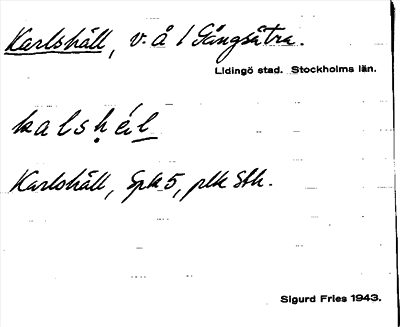 Karlshäll, v. å 1 Gångsätra.
Lidingö stad. Stockholms län.
kalshẹ́l
Karlshäll, Spk 5, plk Sth.
Sigurd Fries 1943.